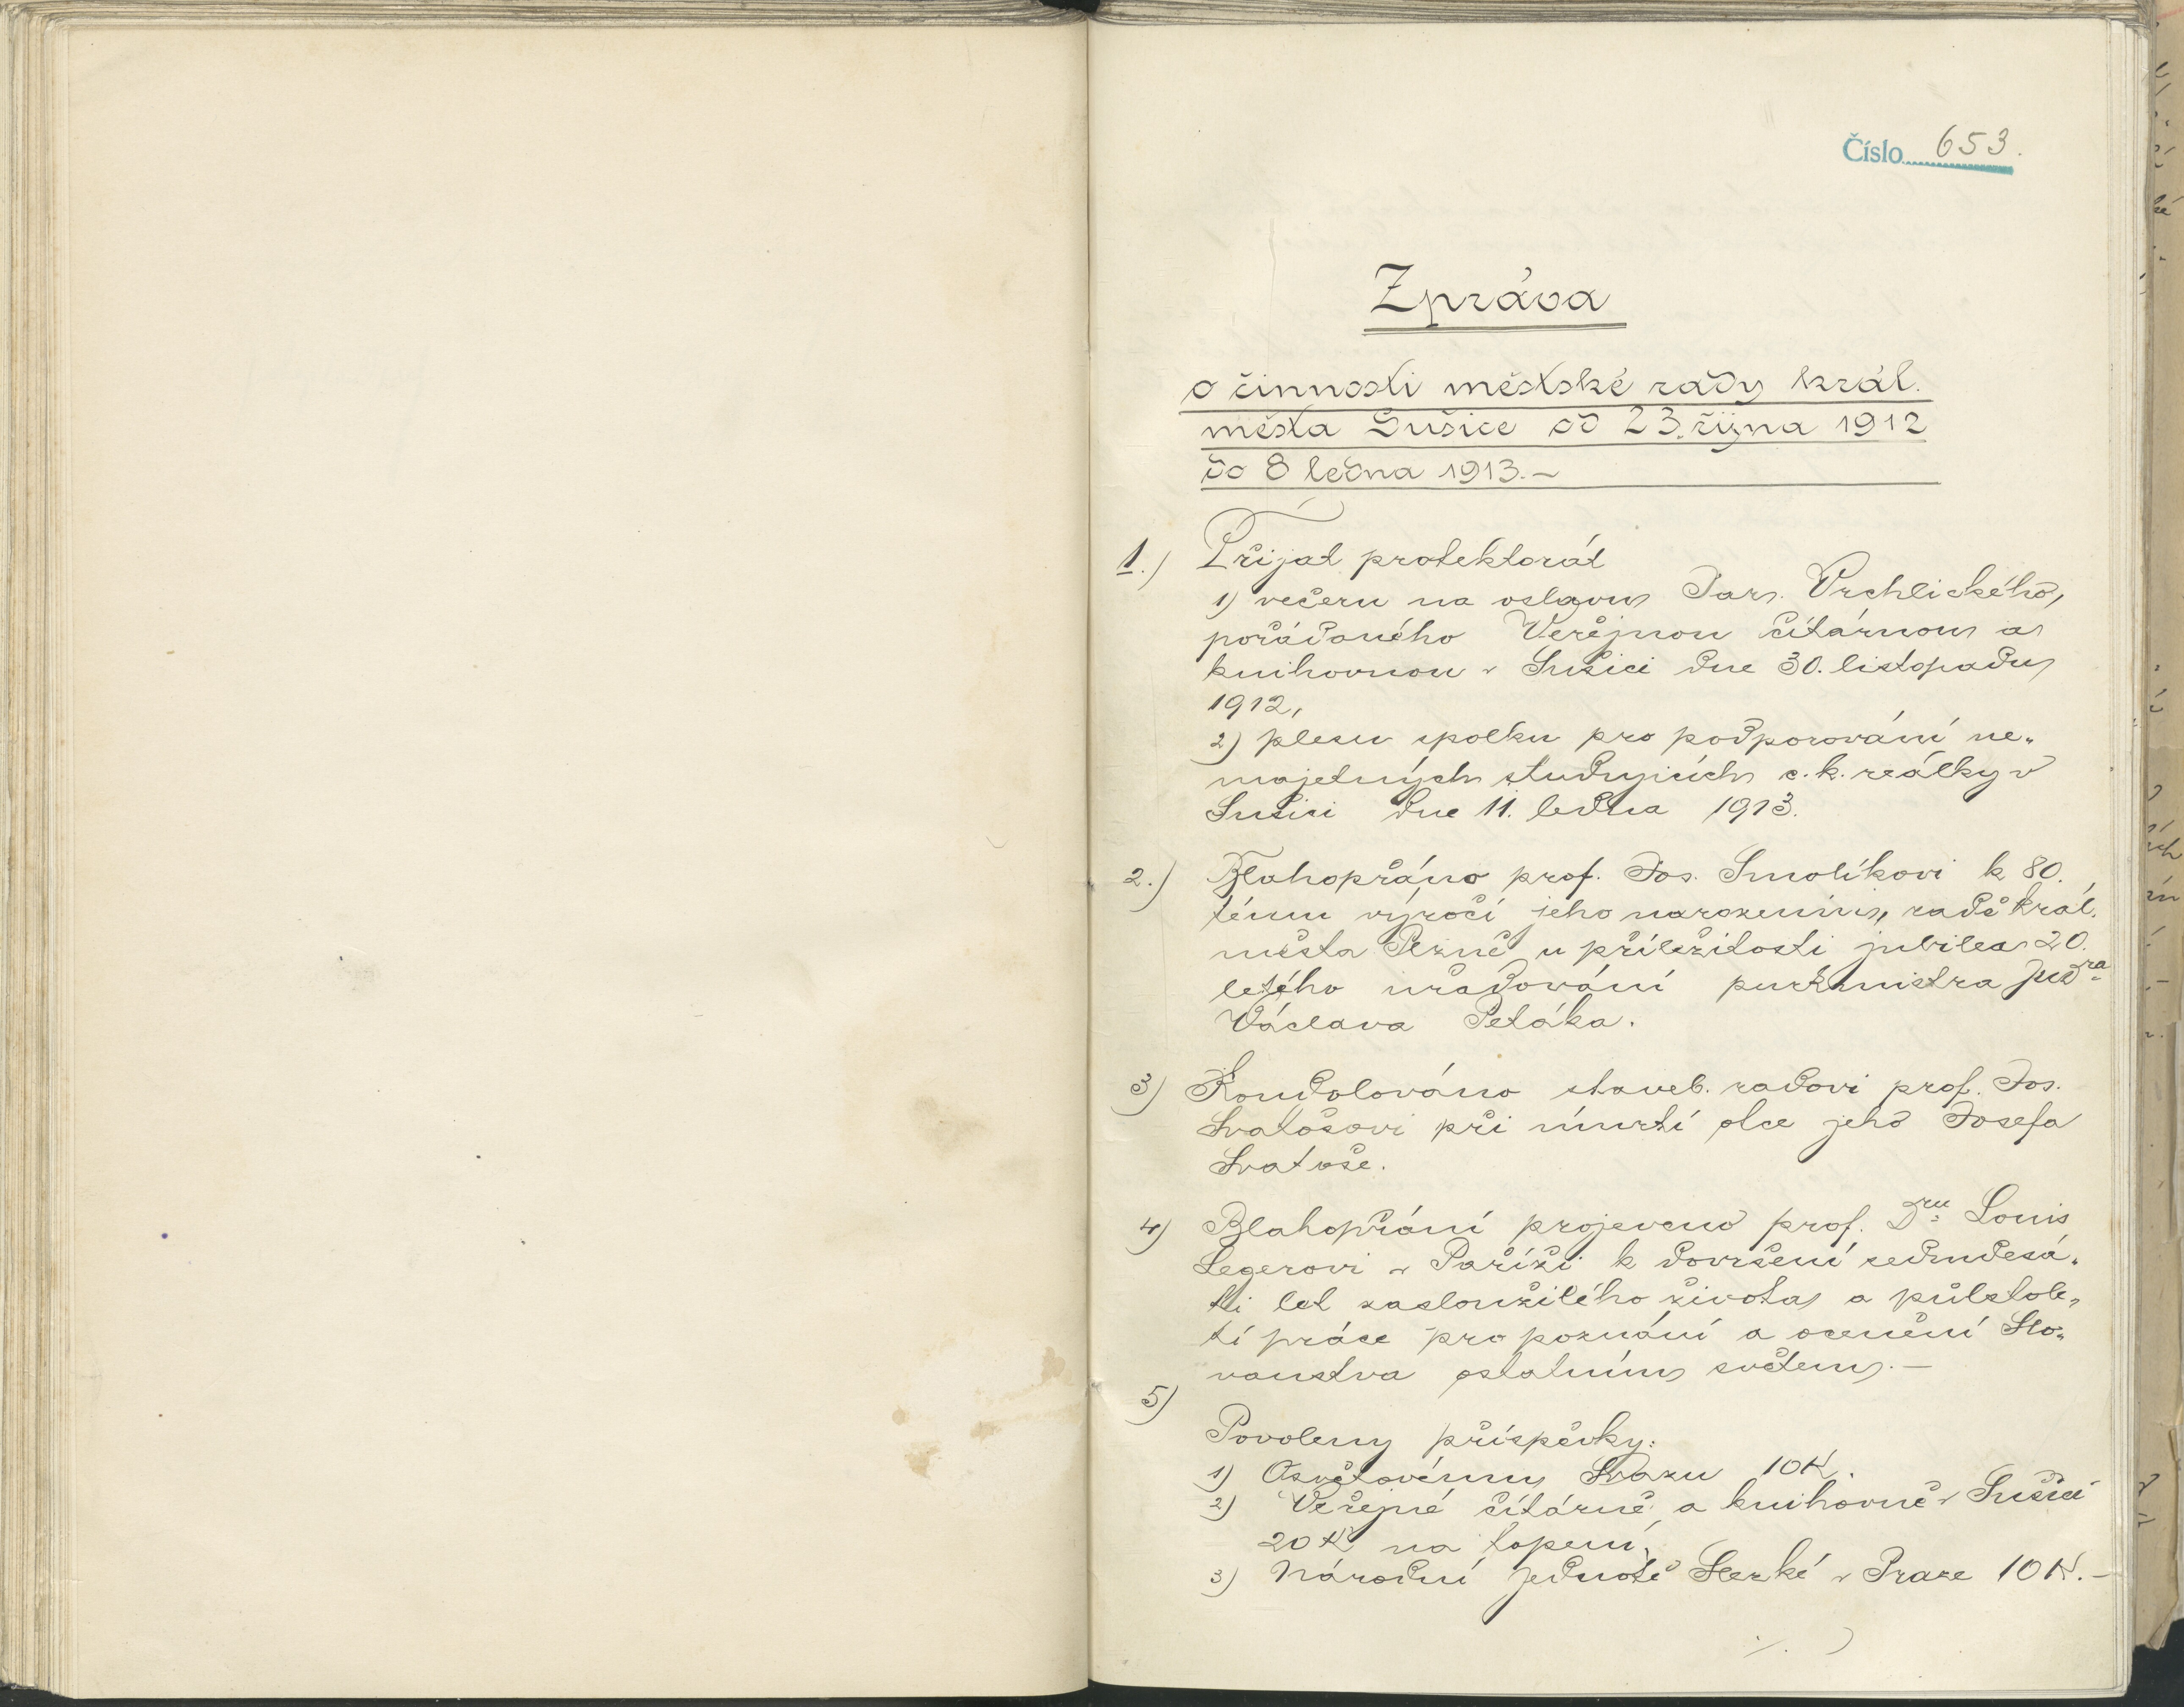 Číslo 653.
Zpráva
o činnosti městské rady král.
města Sušice od 23. října 1912
do 8 ledna 1913.-
1.) Přijat protektorát
1) večeru na oslavu Jar. Vrchlického,
pořádaného Veřejnou čítárnou a
knihovnou v Sušici dne 30. listopadu
1912,
2) plesu spolku pro podporování ne„
majetných studujících c. k. reálky v
Sušici dne 11. ledna 1913.
2.) Blahopřáno prof. Jos. Smolíkovi k 80.
tému výročí jeho narozenin, radě král.
města Plzně u příležitosti jubilea 20.
letého úřadování purkmistra JUDra
Václava Petáka.
3) Kondolováno staveb. radovi prof. Jos.
Svatošovi při úmrtí otce jeho Josefa
Svatoše.
4) Blahopřání projeveno prof. Dru Louis
Legerovi v Paříži k dovršení sedmdesá„
ti let zasloužilého života a půlstole„
tí práce pro poznání a ocenění Slo„
vanstva ostatním světem.-
5)
Povoleny příspěvky:
1) Osvětovému Svazu 10 K.
2) Veřejné čítárně a knihovně v Sušici
20 K na topení,
3) Národní jednotě Slezké v Praze 10 K.-
./.